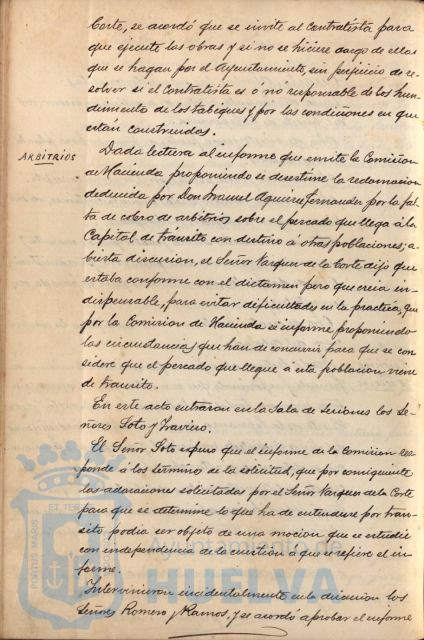 Corte, se acordó que se invite al Contratista para
que ejecute las obras y si no se hiciere cargo de ellas
que se hagan por el Ayuntamiento, sin perjuicio de re-
solver si el Contratista es ó nó responsable de los hun-
dimientos de los tabiques y por las condiciones en que
están construidos.
ARBITRIOS
Dada lectura al informe que emite la Comision
de Hacienda proponiendo se desestime la reclamacion
deducida por Don Manuel Aguirre Fernandez por la fal-
ta de cobro de arbitrios sobre el pescado que llega á la
Capital de tránsito con destino á otras poblaciones; a-
bierta discusion, el Señor Vazquez de la Corte dijo que
estaba conforme con el dictamen pero que creia in-
dispensable, para evitar dificultades en la practica, que
por la Comision de Hacienda se informe proponiendo
las circunstancias que han de concurrir para que se con-
sidere que el pescado que llegue a esta poblacion viene
de transito.
En este acto entraron en la Sala de Sesiones los Se-
ñores Soto y Travieso.
El Señor Soto expuso que el informe de la Comision res-
ponde á los terminos de la solicitud, que por consiguiente
las aclaraciones solicitadas por el Señor Vazquez de la Corte
para que se determine lo que ha de entenderse por tran-
sito podia ser objeto de una mocion que se estudie
con independencia de la cuestion á que se refiere el in-
forme.
Intervinieron incidentalmente en la discusion los
Señores Romero y Ramos, y se acordó aprobar el informe
PORTUS MARIS ET TERRAE
Ayuntamiento de
HUELVA